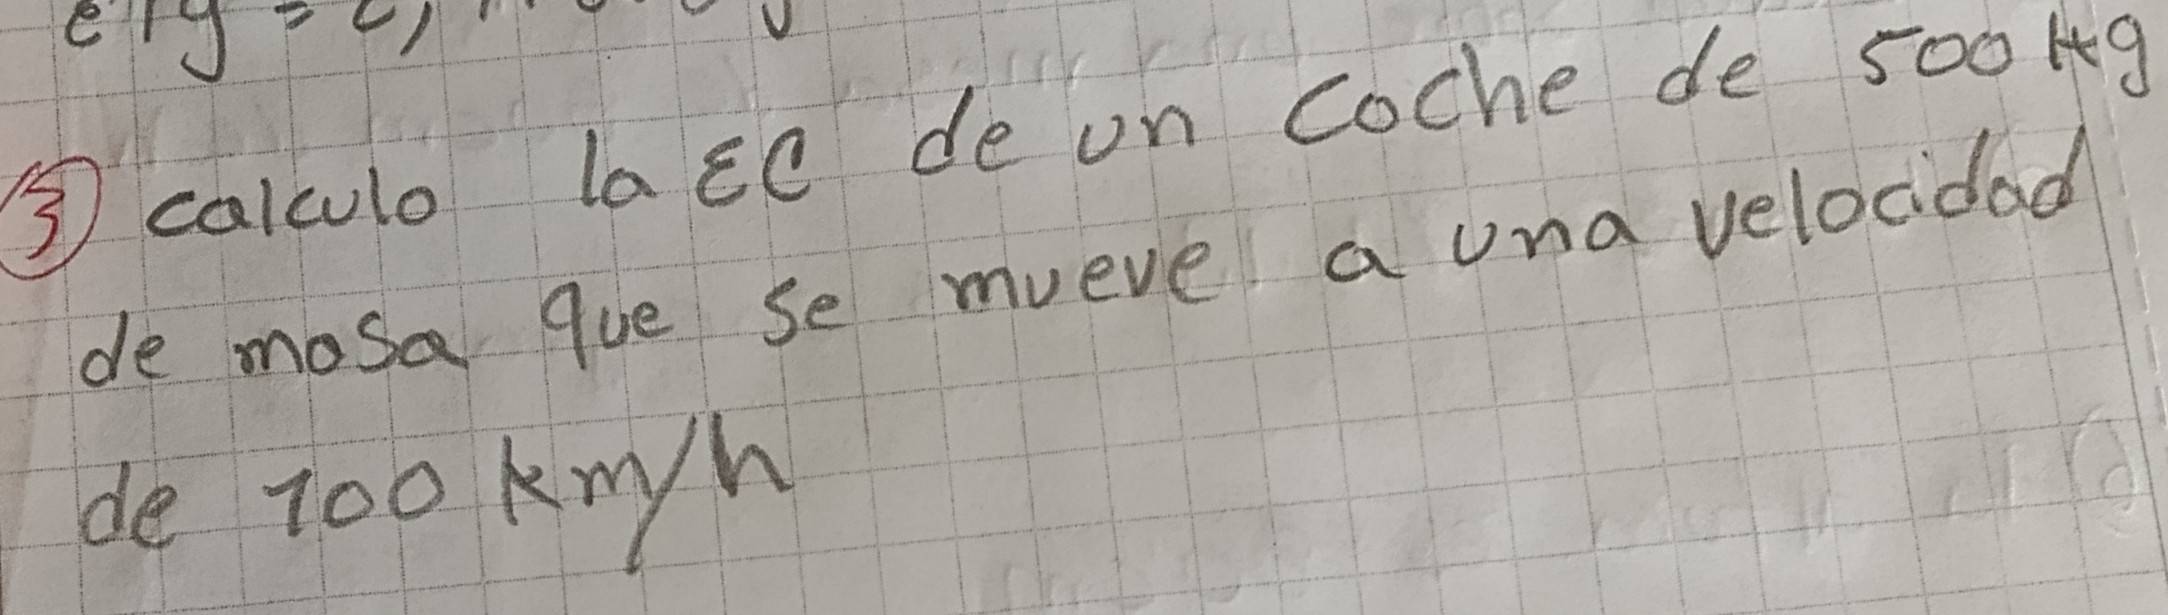 ③ calculo la EC de un coche de 500 Kg
de masa que se mueve a una velocidad
de 100 km/h